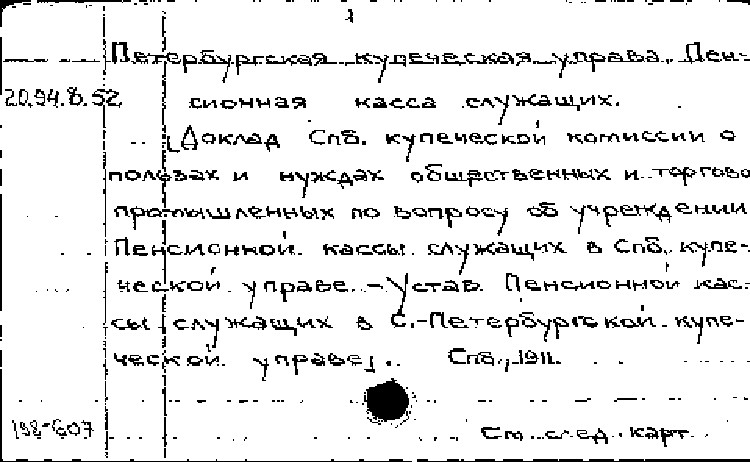 Петербургская купеческая управа. Пен-
20.94.8.52. сионная касса служащих.
[Доклад Спб. купеческой комиссии о
пользах и нуждах общественных и торгово
промышленных по вопросу об учреждении
Пенсионной кассы служащих в Спб. купе-
ческой управе. - Устав Пенсионной кас-
сы служащих в С.-Петербургской купе-
ческой управе]. Спб., 1911.
198-607 См. след. карт.